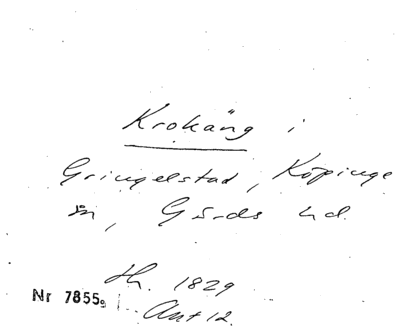 Krokäng i
Gringelstad, Köpinge
sn, Gärds hd.
Hh. 1829
Nr 7855g
Ant 12.